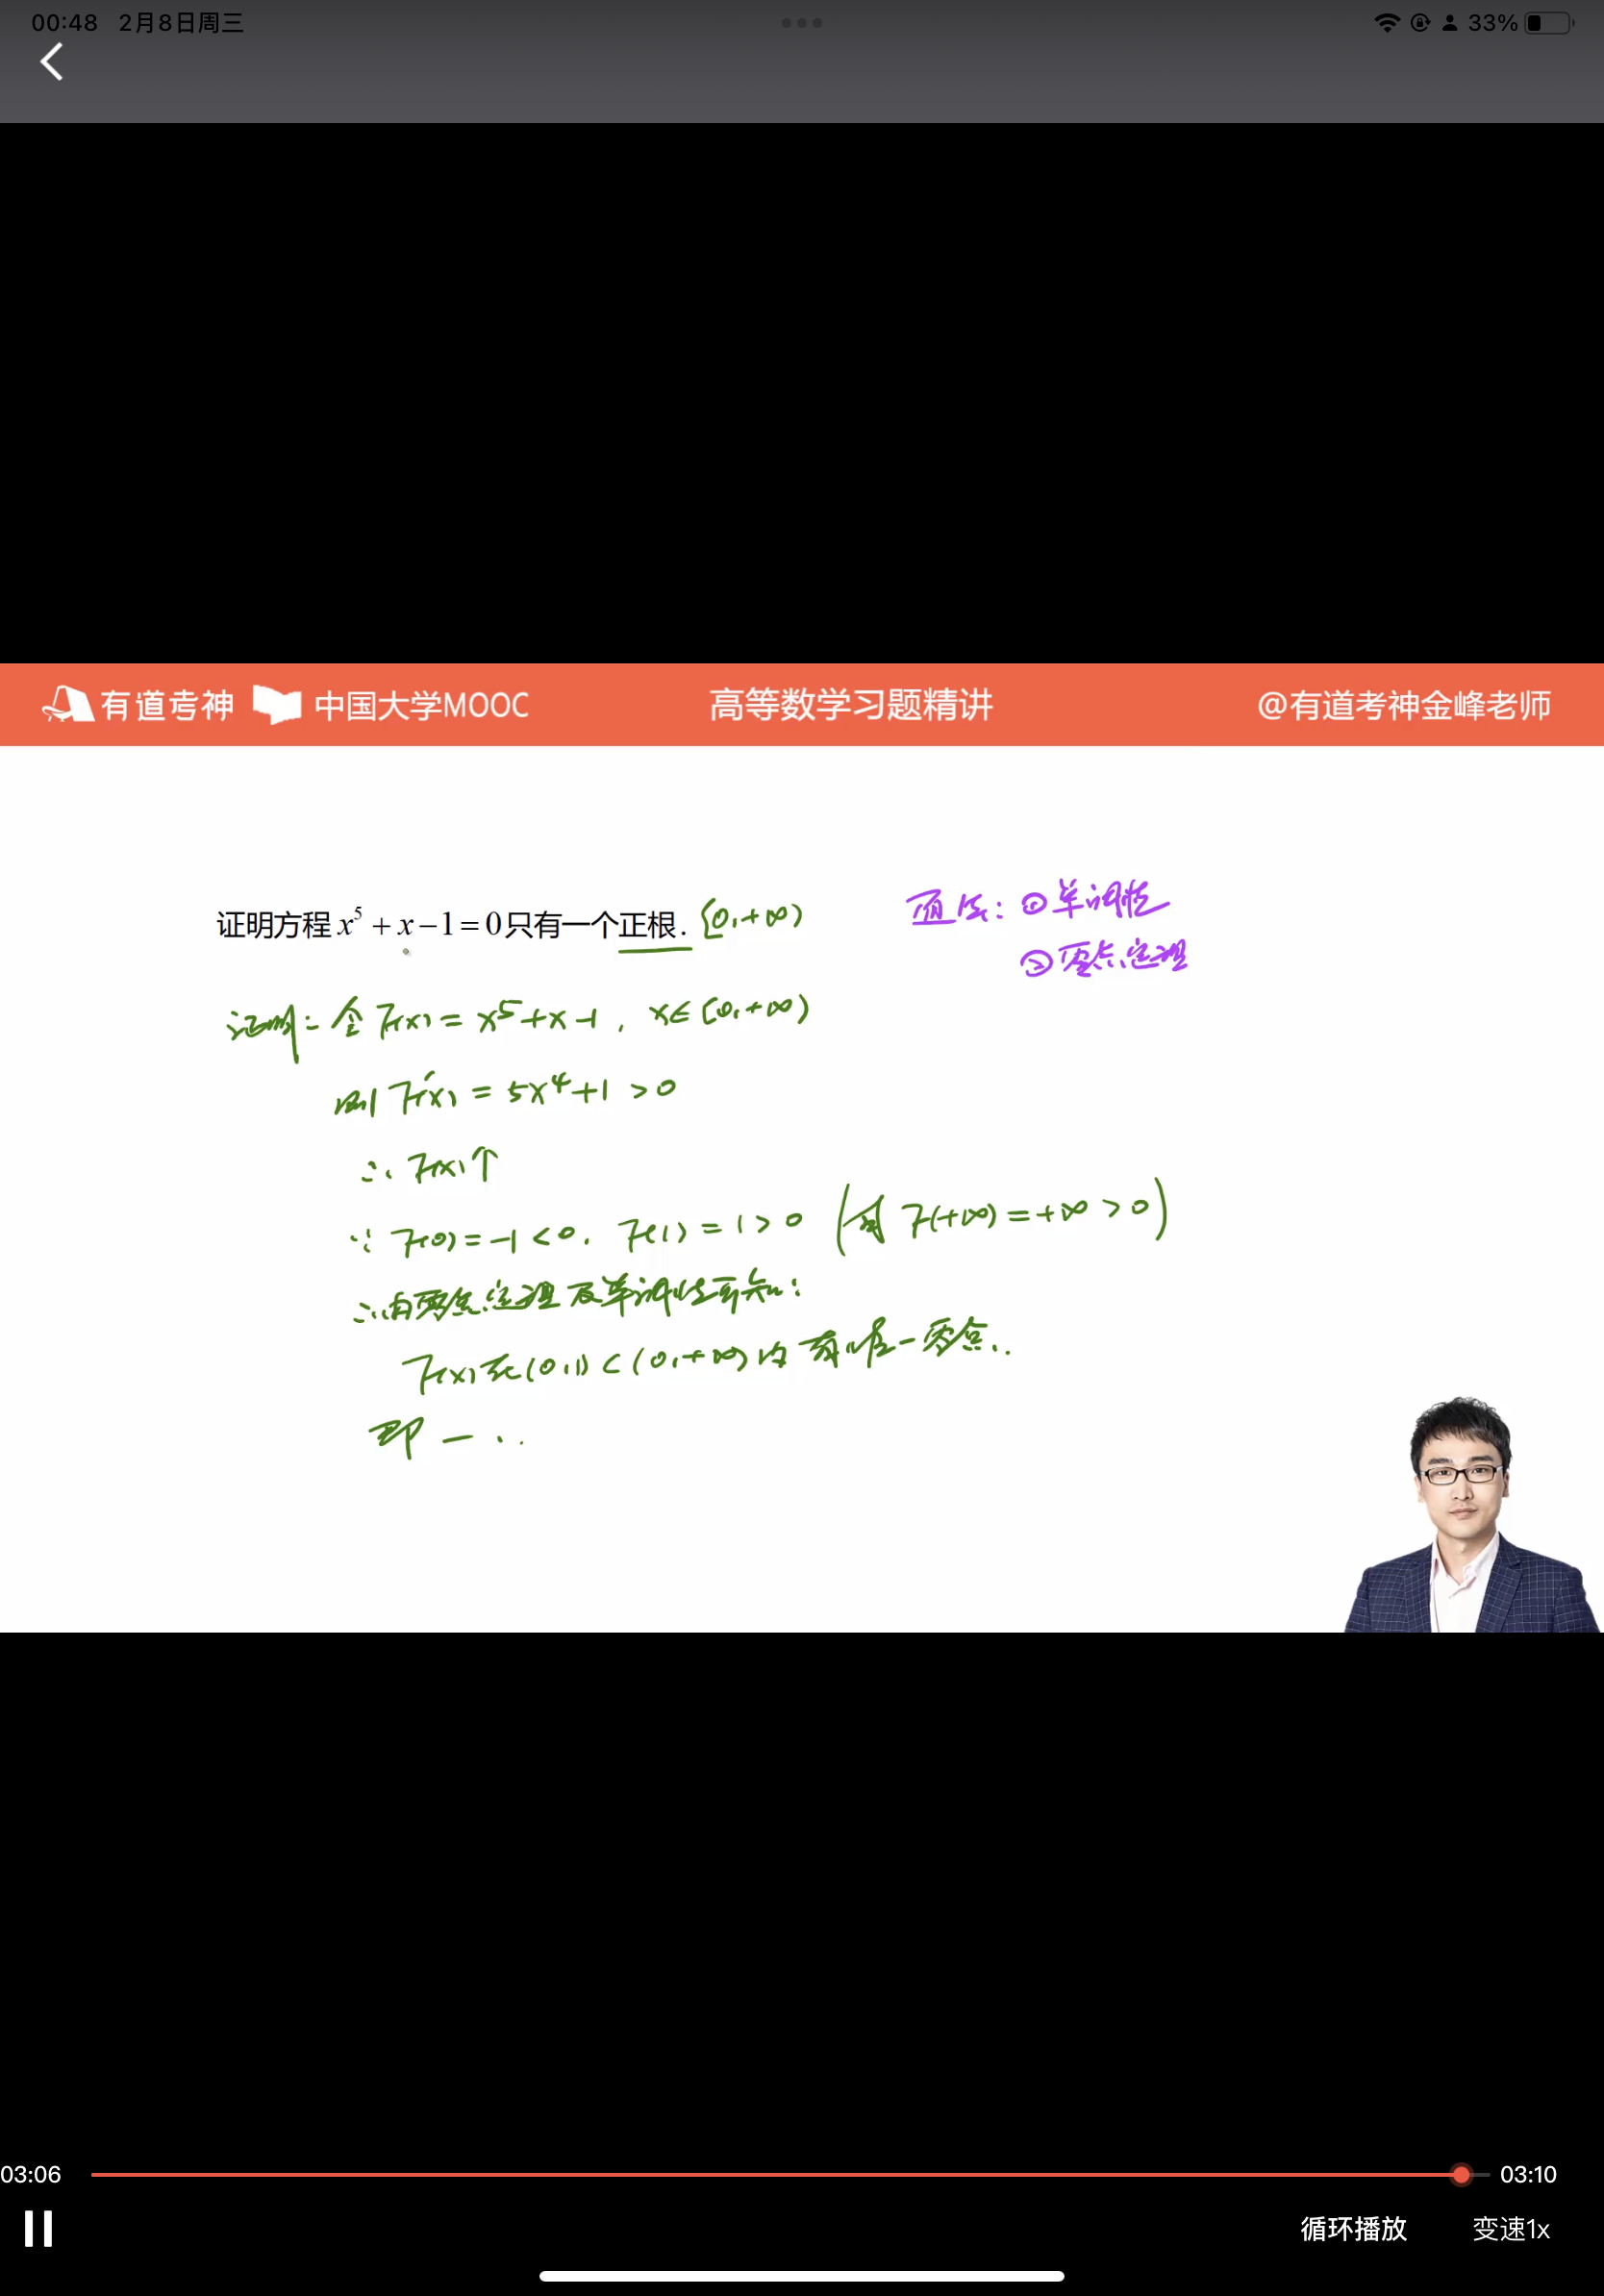 00:48 2月8日周三
33%
有道考神 中国大学MOOC 高等数学习题精讲 @有道考神金峰老师
证明方程 x⁵ + x − 1 = 0 只有一个正根. [0,+∞)
① 单调性
② 零点定理
证明: 令 F(x) = x⁵+x−1, x∈[0,+∞)
则 F′(x) = 5x⁴+1 >0
∴ F(x)↑
∵ F(0)=−1<0, F(1)=1>0 (或 F(+∞)=+∞>0)
∴由零点定理及单调性可知:
F(x)在(0,1)⊂(0,+∞)内有唯一零点.
即 — ..
03:06 03:10
循环播放 变速1x